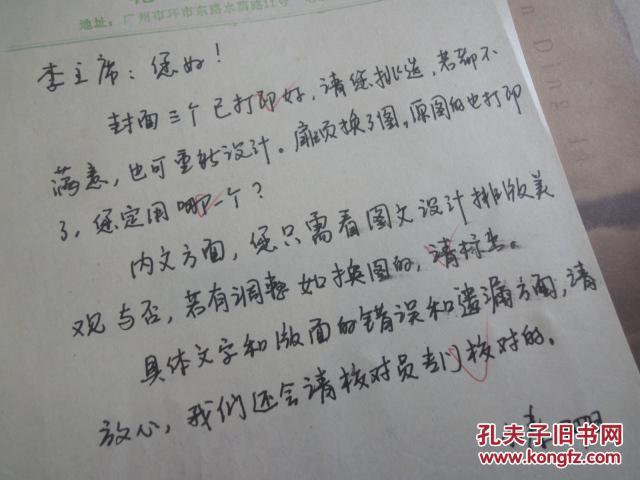 地址：广州市环市东路水荫路11号
李主席：您好！
封面三个已打印好，请您挑选，若都不
满意，也可重新设计。扉页换了图，原图的也打印
了，您定用哪一个？
内文方面，您只需看图文设计排版美
观与否，若有调整如换图的，请标出。
具体文字和版面的错误和遗漏方面，请
放心，我们还会请核对员专门核对的。
孔夫子旧书网
www.kongfz.com